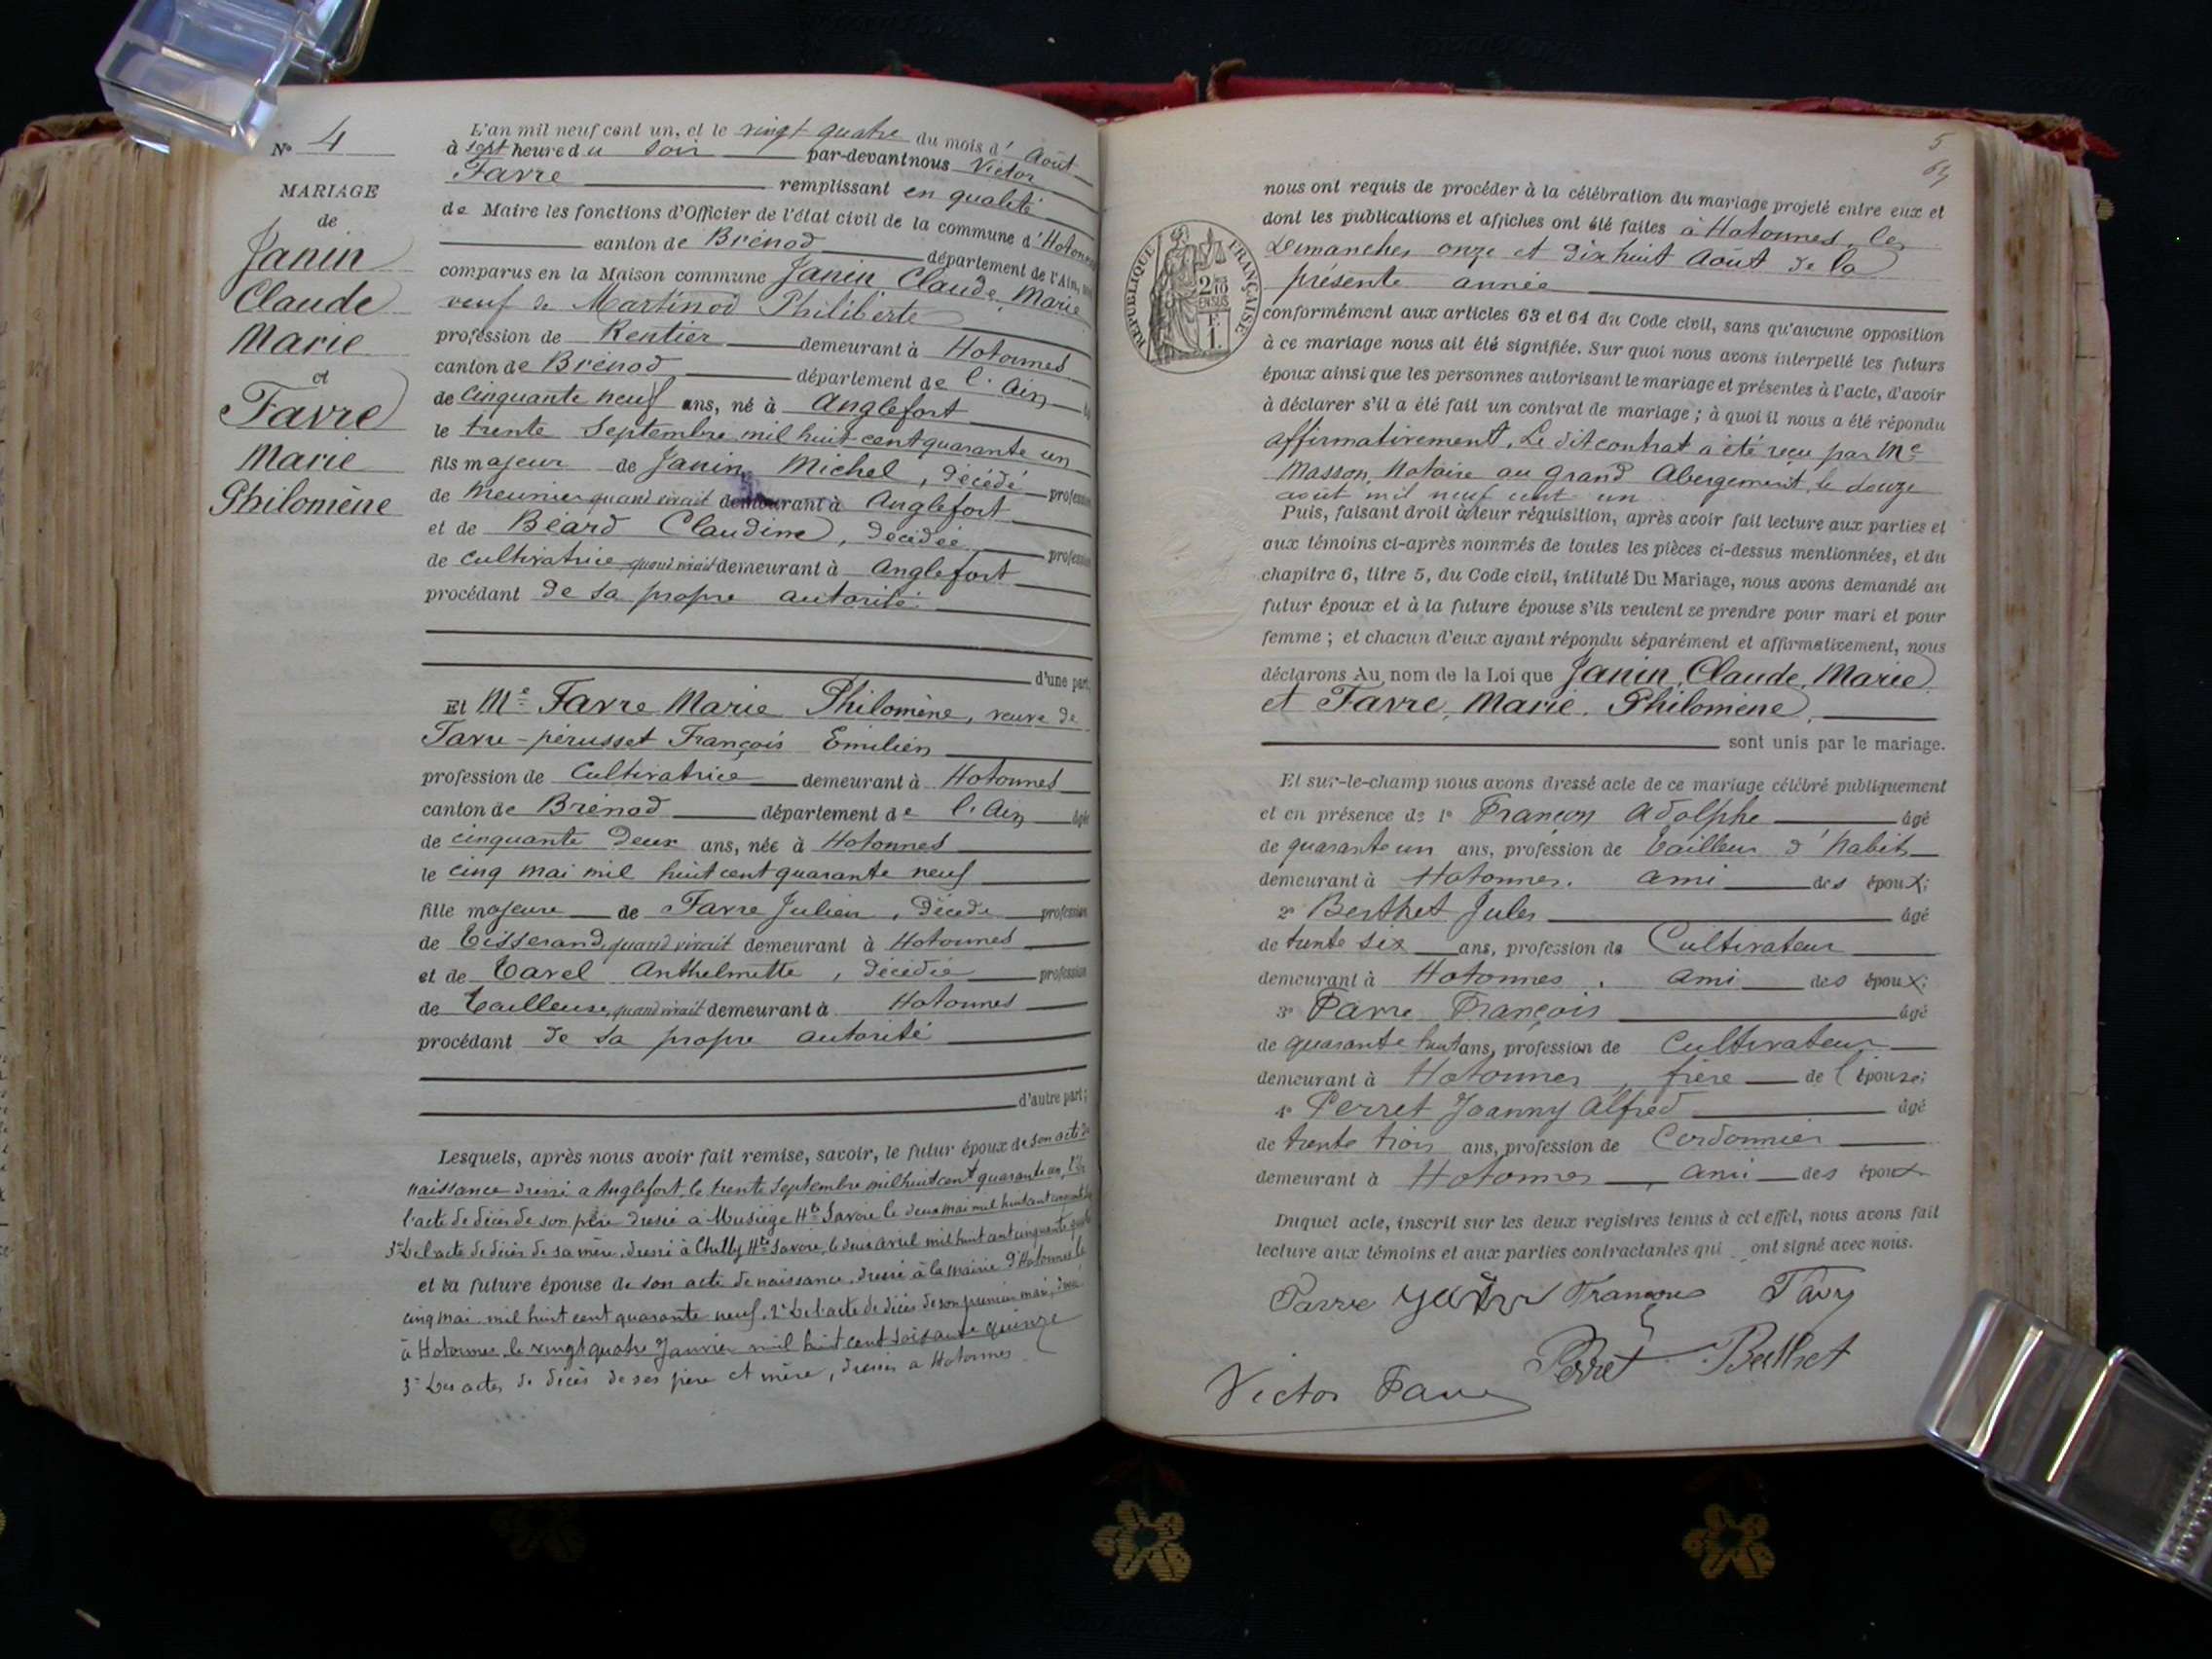 N° 4
MARIAGE
de
Janin
Claude
Marie
et
Favre
Marie
Philomène
L'an mil neuf cent un, et le vingt quatre du mois d' Août
à sept heure du soir par-devant nous Victor
Favre remplissant en qualité
de Maire les fonctions d'Officier de l'état civil de la commune d'Hotonnes
canton de Brénod département de l'Ain,
comparus en la Maison commune Janin Claude Marie
veuf de Martinod Philiberte
profession de Rentier demeurant à Hotonnes
canton de Brénod département de l'Ain
de cinquante neuf ans, né à Anglefort
le trente Septembre mil huit cent quarante un
fils majeur de Janin Michel, décédé profession
de meunier quand vivait demeurant à Anglefort
et de Béard Claudine, décédée profession
de cultivatrice quand vivait demeurant à Anglefort
procédant de sa propre autorité
d'une part,
Et Me Favre Marie Philomène, veuve de
Favre-pérusset François Emilien
profession de Cultivatrice demeurant à Hotonnes
canton de Brénod département de l'Ain âgée
de cinquante deux ans, née à Hotonnes
le cinq mai mil huit cent quarante neuf
fille majeure de Favre Julien, décédé profession
de Tisserand quand vivait demeurant à Hotonnes
et de Tavel Anthelmette, décédée profession
de Tailleuse quand vivait demeurant à Hotonnes
procédant de sa propre autorité
d'autre part;
Lesquels, après nous avoir fait remise, savoir, le futur époux de son acte de
naissance dressé à Anglefort, le trente Septembre mil huit cent quarante un,
l'acte de décès de son père dressé à Musiège Hte Savoie le deux mai mil huit cent
3° De l'acte de décès de sa mère, dressé à Chilly Hte Savoie, le deux avril mil huit cent cinquante quatre
et la future épouse de son acte de naissance, dressé à la mairie d'Hotonnes le
cinq mai mil huit cent quarante neuf, 2° De l'acte de décès de son premier mari, dressé
à Hotonnes le vingt quatre Janvier mil huit cent soixante quinze
3° Des actes de décès de ses père et mère, dressés à Hotonnes
5
nous ont requis de procéder à la célébration du mariage projeté entre eux et
dont les publications et affiches ont été faites à Hotonnes, les
Dimanches onze et dix huit Août de la
présente année
RÉPUBLIQUE FRANÇAISE
2/10 EN SUS
F
1.
conformément aux articles 63 et 64 du Code civil, sans qu'aucune opposition
à ce mariage nous ait été signifiée. Sur quoi nous avons interpellé les futurs
époux ainsi que les personnes autorisant le mariage et présentes à l'acte, d'avoir
à déclarer s'il a été fait un contrat de mariage; à quoi il nous a été répondu
affirmativement. Le dit contrat a été reçu par Me
Masson, Notaire au Grand Abergement, le douze
août mil neuf cent un
Puis, faisant droit à leur réquisition, après avoir fait lecture aux parties et
aux témoins ci-après nommés de toutes les pièces ci-dessus mentionnées, et du
chapitre 6, titre 5, du Code civil, intitulé Du Mariage, nous avons demandé au
futur époux et à la future épouse s'ils veulent se prendre pour mari et pour
femme; et chacun d'eux ayant répondu séparément et affirmativement, nous
déclarons Au nom de la Loi que Janin, Claude, Marie
et Favre, Marie, Philomène,
sont unis par le mariage.
Et sur-le-champ nous avons dressé acte de ce mariage célébré publiquement
et en présence de 1° Françon Adolphe âgé
de quarante un ans, profession de tailleur d'habits
demeurant à Hotonnes, ami des époux;
2° Berthet Jules âgé
de trente six ans, profession de Cultivateur
demeurant à Hotonnes, ami des époux;
3° Favre François âgé
de quarante huit ans, profession de Cultivateur
demeurant à Hotonnes, frère de l'épouse;
4° Perret Joanny Alfred âgé
de trente trois ans, profession de Cordonnier
demeurant à Hotonnes, ami des époux
Duquel acte, inscrit sur les deux registres tenus à cet effet, nous avons fait
lecture aux témoins et aux parties contractantes qui ont signé avec nous.
Favre Françon
Perret Berthet
Victor Favre